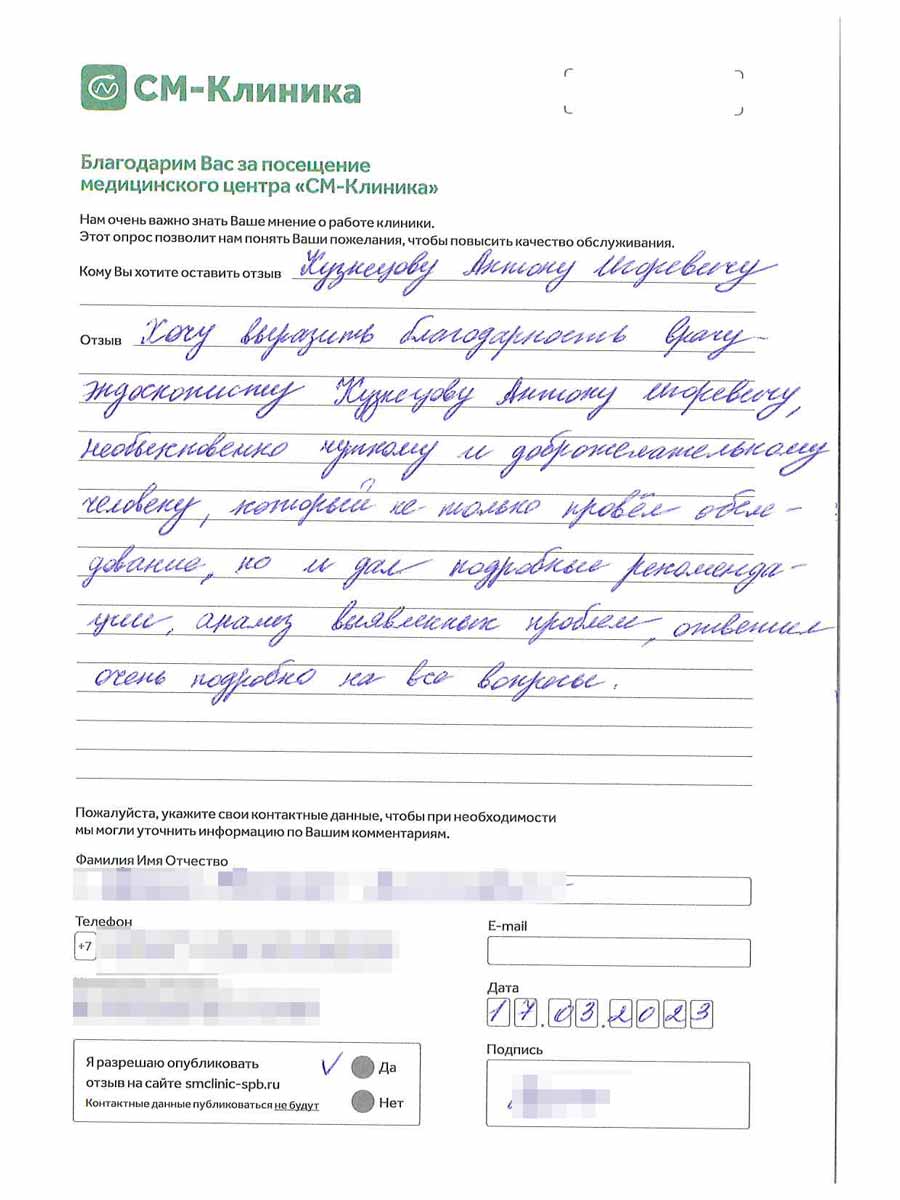 СМ-Клиника
Благодарим Вас за посещение
медицинского центра «СМ-Клиника»
Нам очень важно знать Ваше мнение о работе клиники.
Этот опрос позволит нам понять Ваши пожелания, чтобы повысить качество обслуживания.
Кому Вы хотите оставить отзыв Кузнецову Антону Игоревичу
Отзыв Хочу выразить благодарность врачу-
эндоскописту Кузнецову Антону Игоревичу,
необыкновенно чуткому и доброжелательному
человеку, который не только провёл обсле-
дование, но и дал подробные рекоменда-
ции, анализ выявленных проблем, ответил
очень подробно на все вопросы.
Пожалуйста, укажите свои контактные данные, чтобы при необходимости
мы могли уточнить информацию по Вашим комментариям.
Фамилия Имя Отчество
Телефон
+7
E-mail
Дата
17.03.2023
Я разрешаю опубликовать
отзыв на сайте smclinic-spb.ru
Контактные данные публиковаться не будут
Да
Нет
Подпись